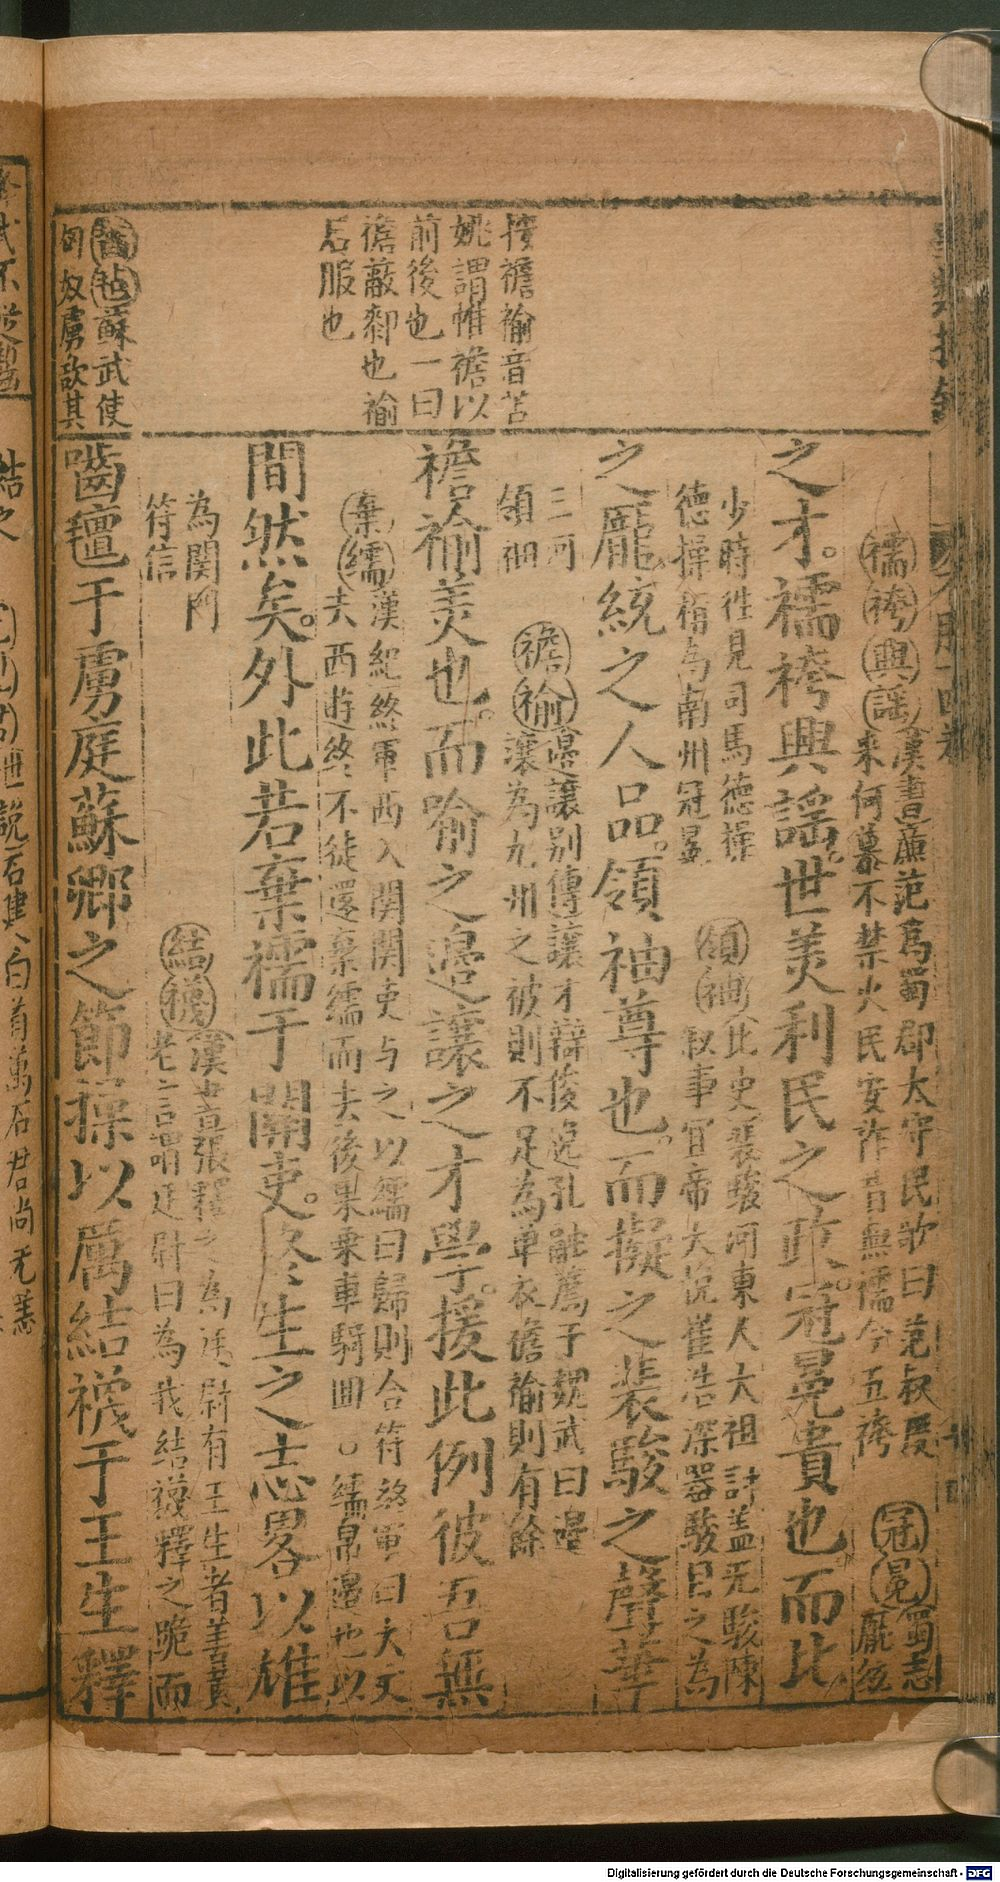 按襜褕音苦
姚謂帷襜以
前後也一曰
襜蔽䣛也褕
后服也
齧毡蘇武使
匈奴虜欲其
襦袴興謡漢書廉范為蜀郡太守民歌曰范叔度
来何暮不禁火民安作昔無襦今五袴
冠冕蜀志
龐統
之才。襦袴興謡。世羙利民之政。冠冕貴也。而比
少時徃見司馬德操
德操稱為南州冠冕
領袖北史裴駿河東人大祖討盖无駿陳
叙事宜帝大恱崔浩深器駿目之為
之龐統之人品。領袖尊也。而擬之裴駿之聲華
三河
領袖
襜褕邉讓别傳讓才辯俊逸孔融薦于魏武曰邉
讓為九州之被則不足為单衣襜褕則有餘
襜褕羙也。而喻之邉讓之才學。援此例彼吾無
棄繻漢紀終軍西入関関吏与之以繻曰歸則合符終軍曰大丈
夫西遊終不徒還棄繻而去後果乗車騎囬○繻帛邉也以
間然矣。外此若棄襦于関吏。終生之志畧以雄
為関門
符信
結襪漢書張釋之為廷尉有王生者善黄
老言謂廷尉曰為我結襪釋之跪而
嚙氊于虜庭蘇卿之節操以厲結襪于王生釋
結之
世說石建白首萬石君尚无恙
Digitalisierung gefördert durch die Deutsche Forschungsgemeinschaft - DFG